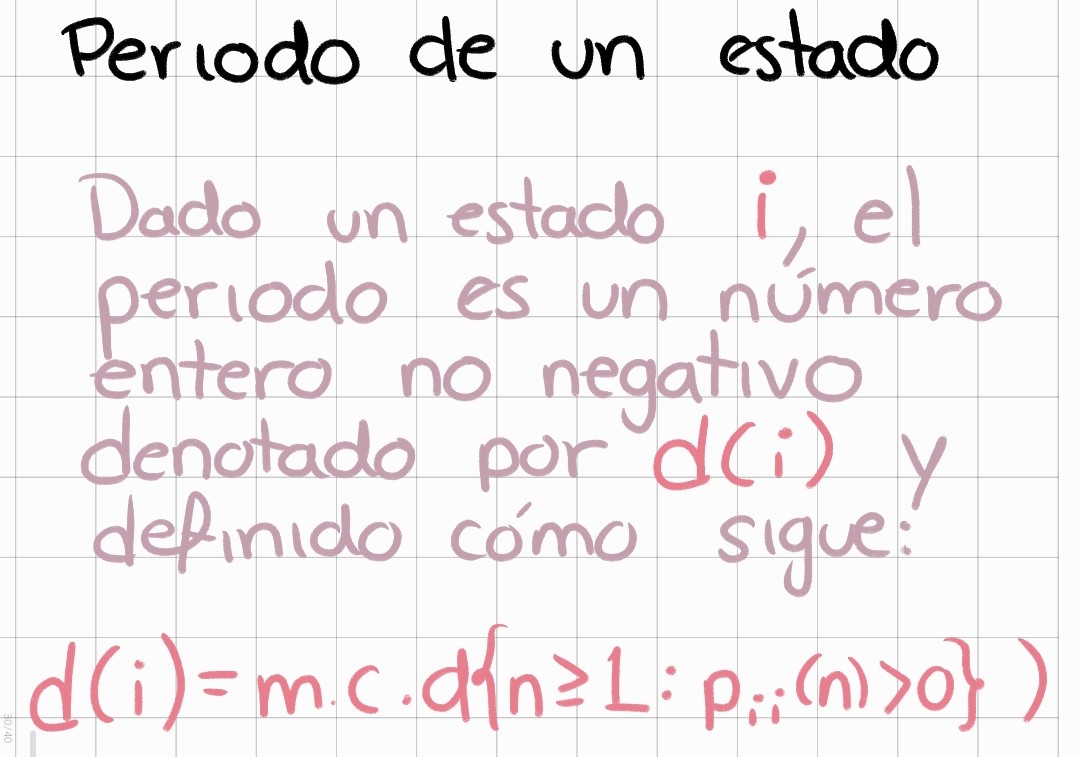 Periodo de un estado
Dado un estado i, el
periodo es un número
entero no negativo
denotado por d(i) y
definido cómo sigue:
d(i)=m.c.d{n≥1: pᵢᵢ(n)>0} )
30/40